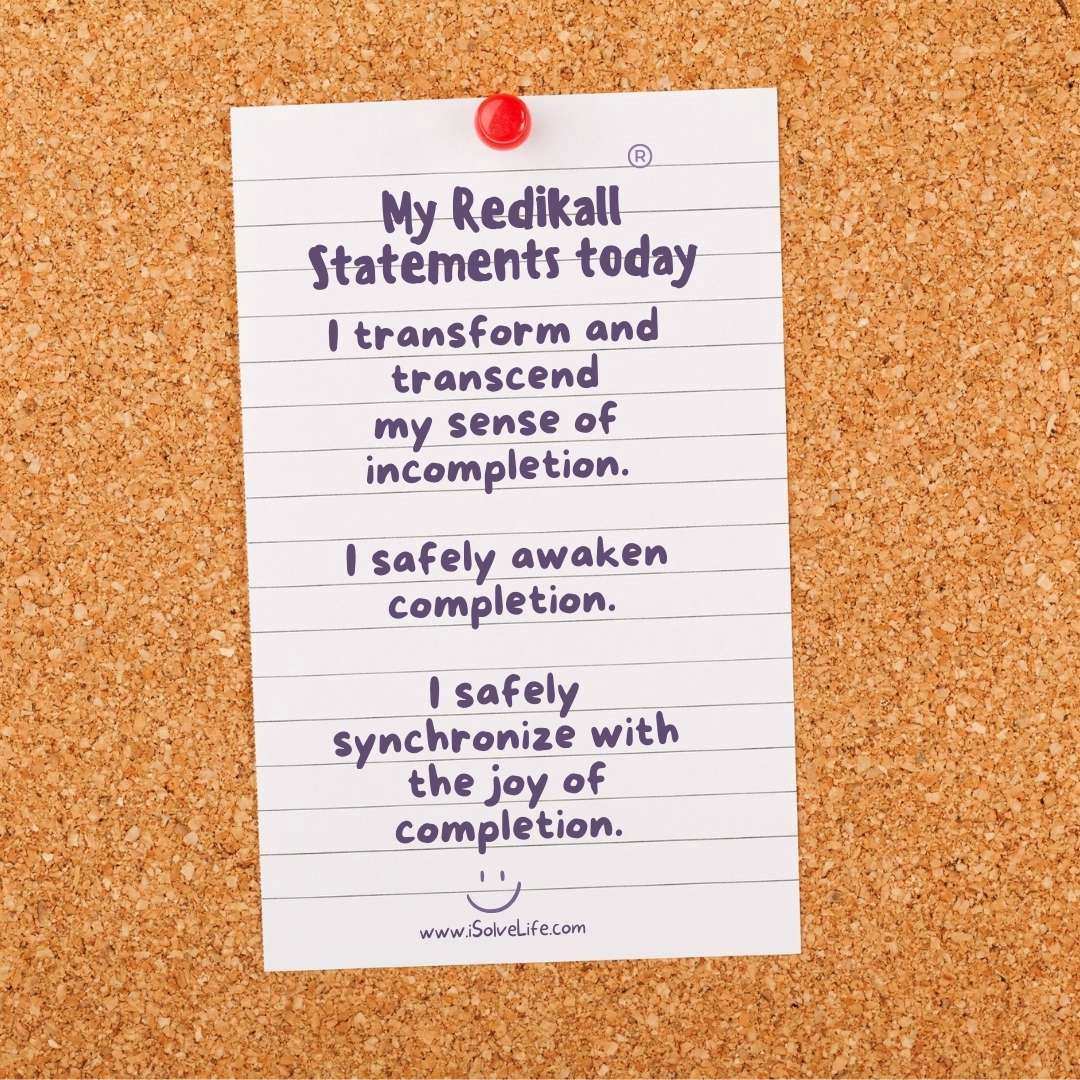 ®
My Redikall
Statements today
I transform and
transcend
my sense of
incompletion.
I safely awaken
completion.
I safely
synchronize with
the joy of
completion.
www.iSolveLife.com